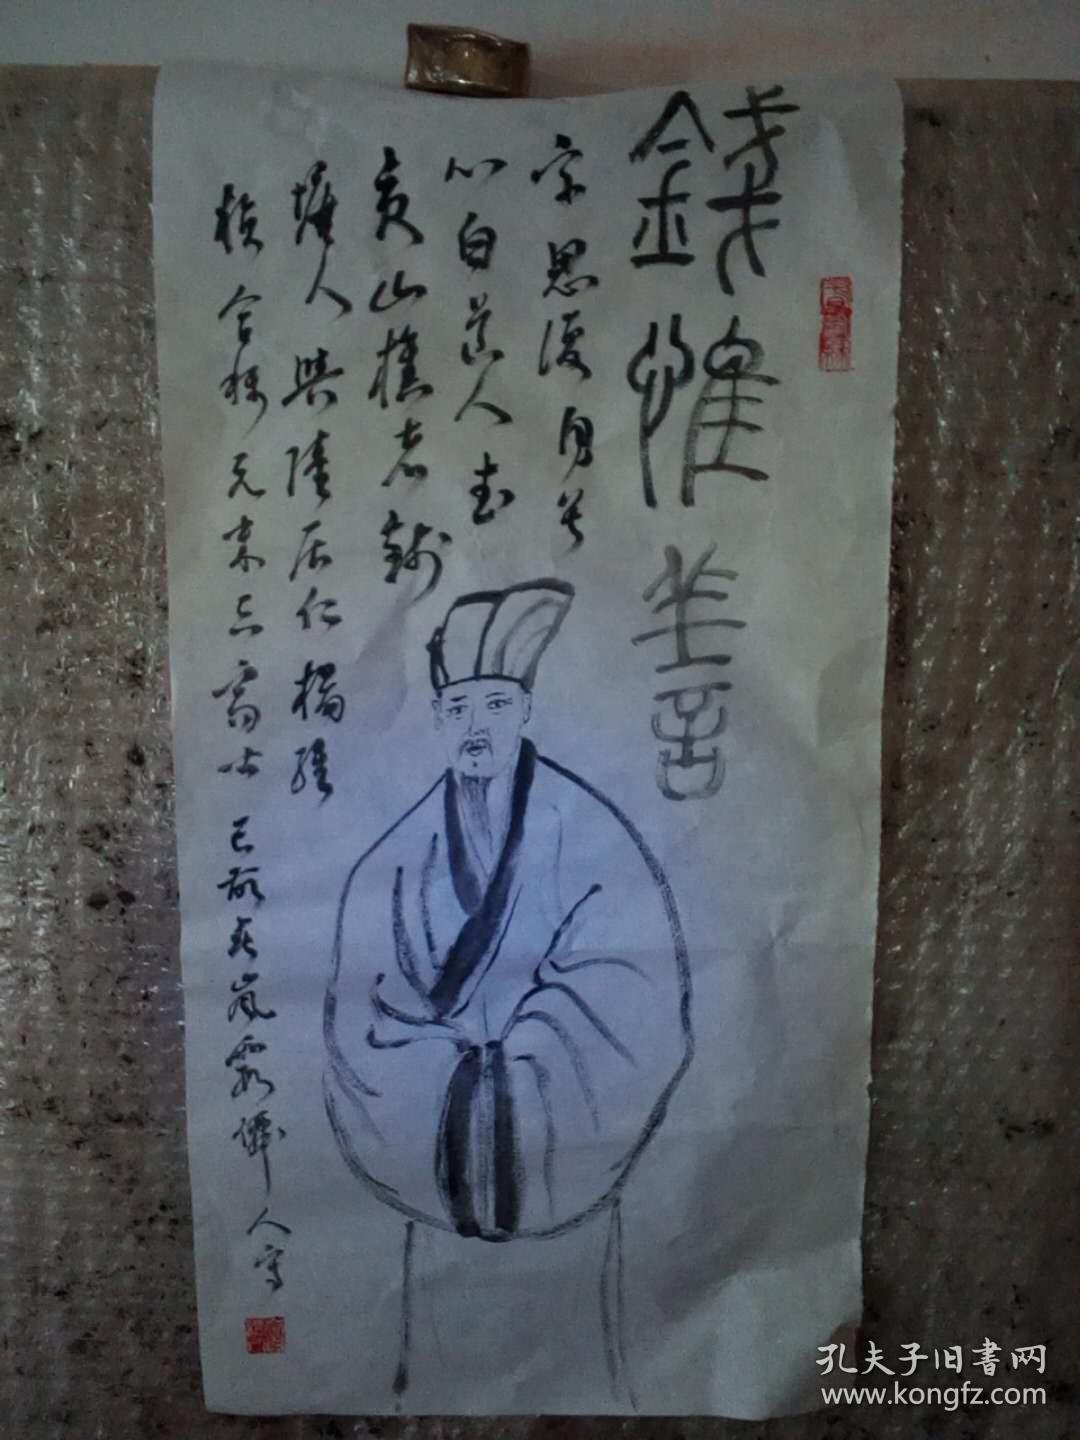 錢惟善
字思復自号
心白道人武
夷山樵者錢
塘人與陸居仁楊維
楨合称元末三高士 己亥嵐霞儒人寫
孔夫子旧書网
www.kongfz.com